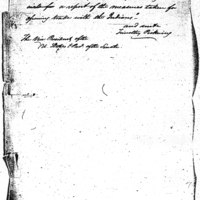 a report of the measures taken for
opening trade with the Indians."
and wrote
Timothy Pickering
The Vice President of the
U. States & Pres. of the Senate